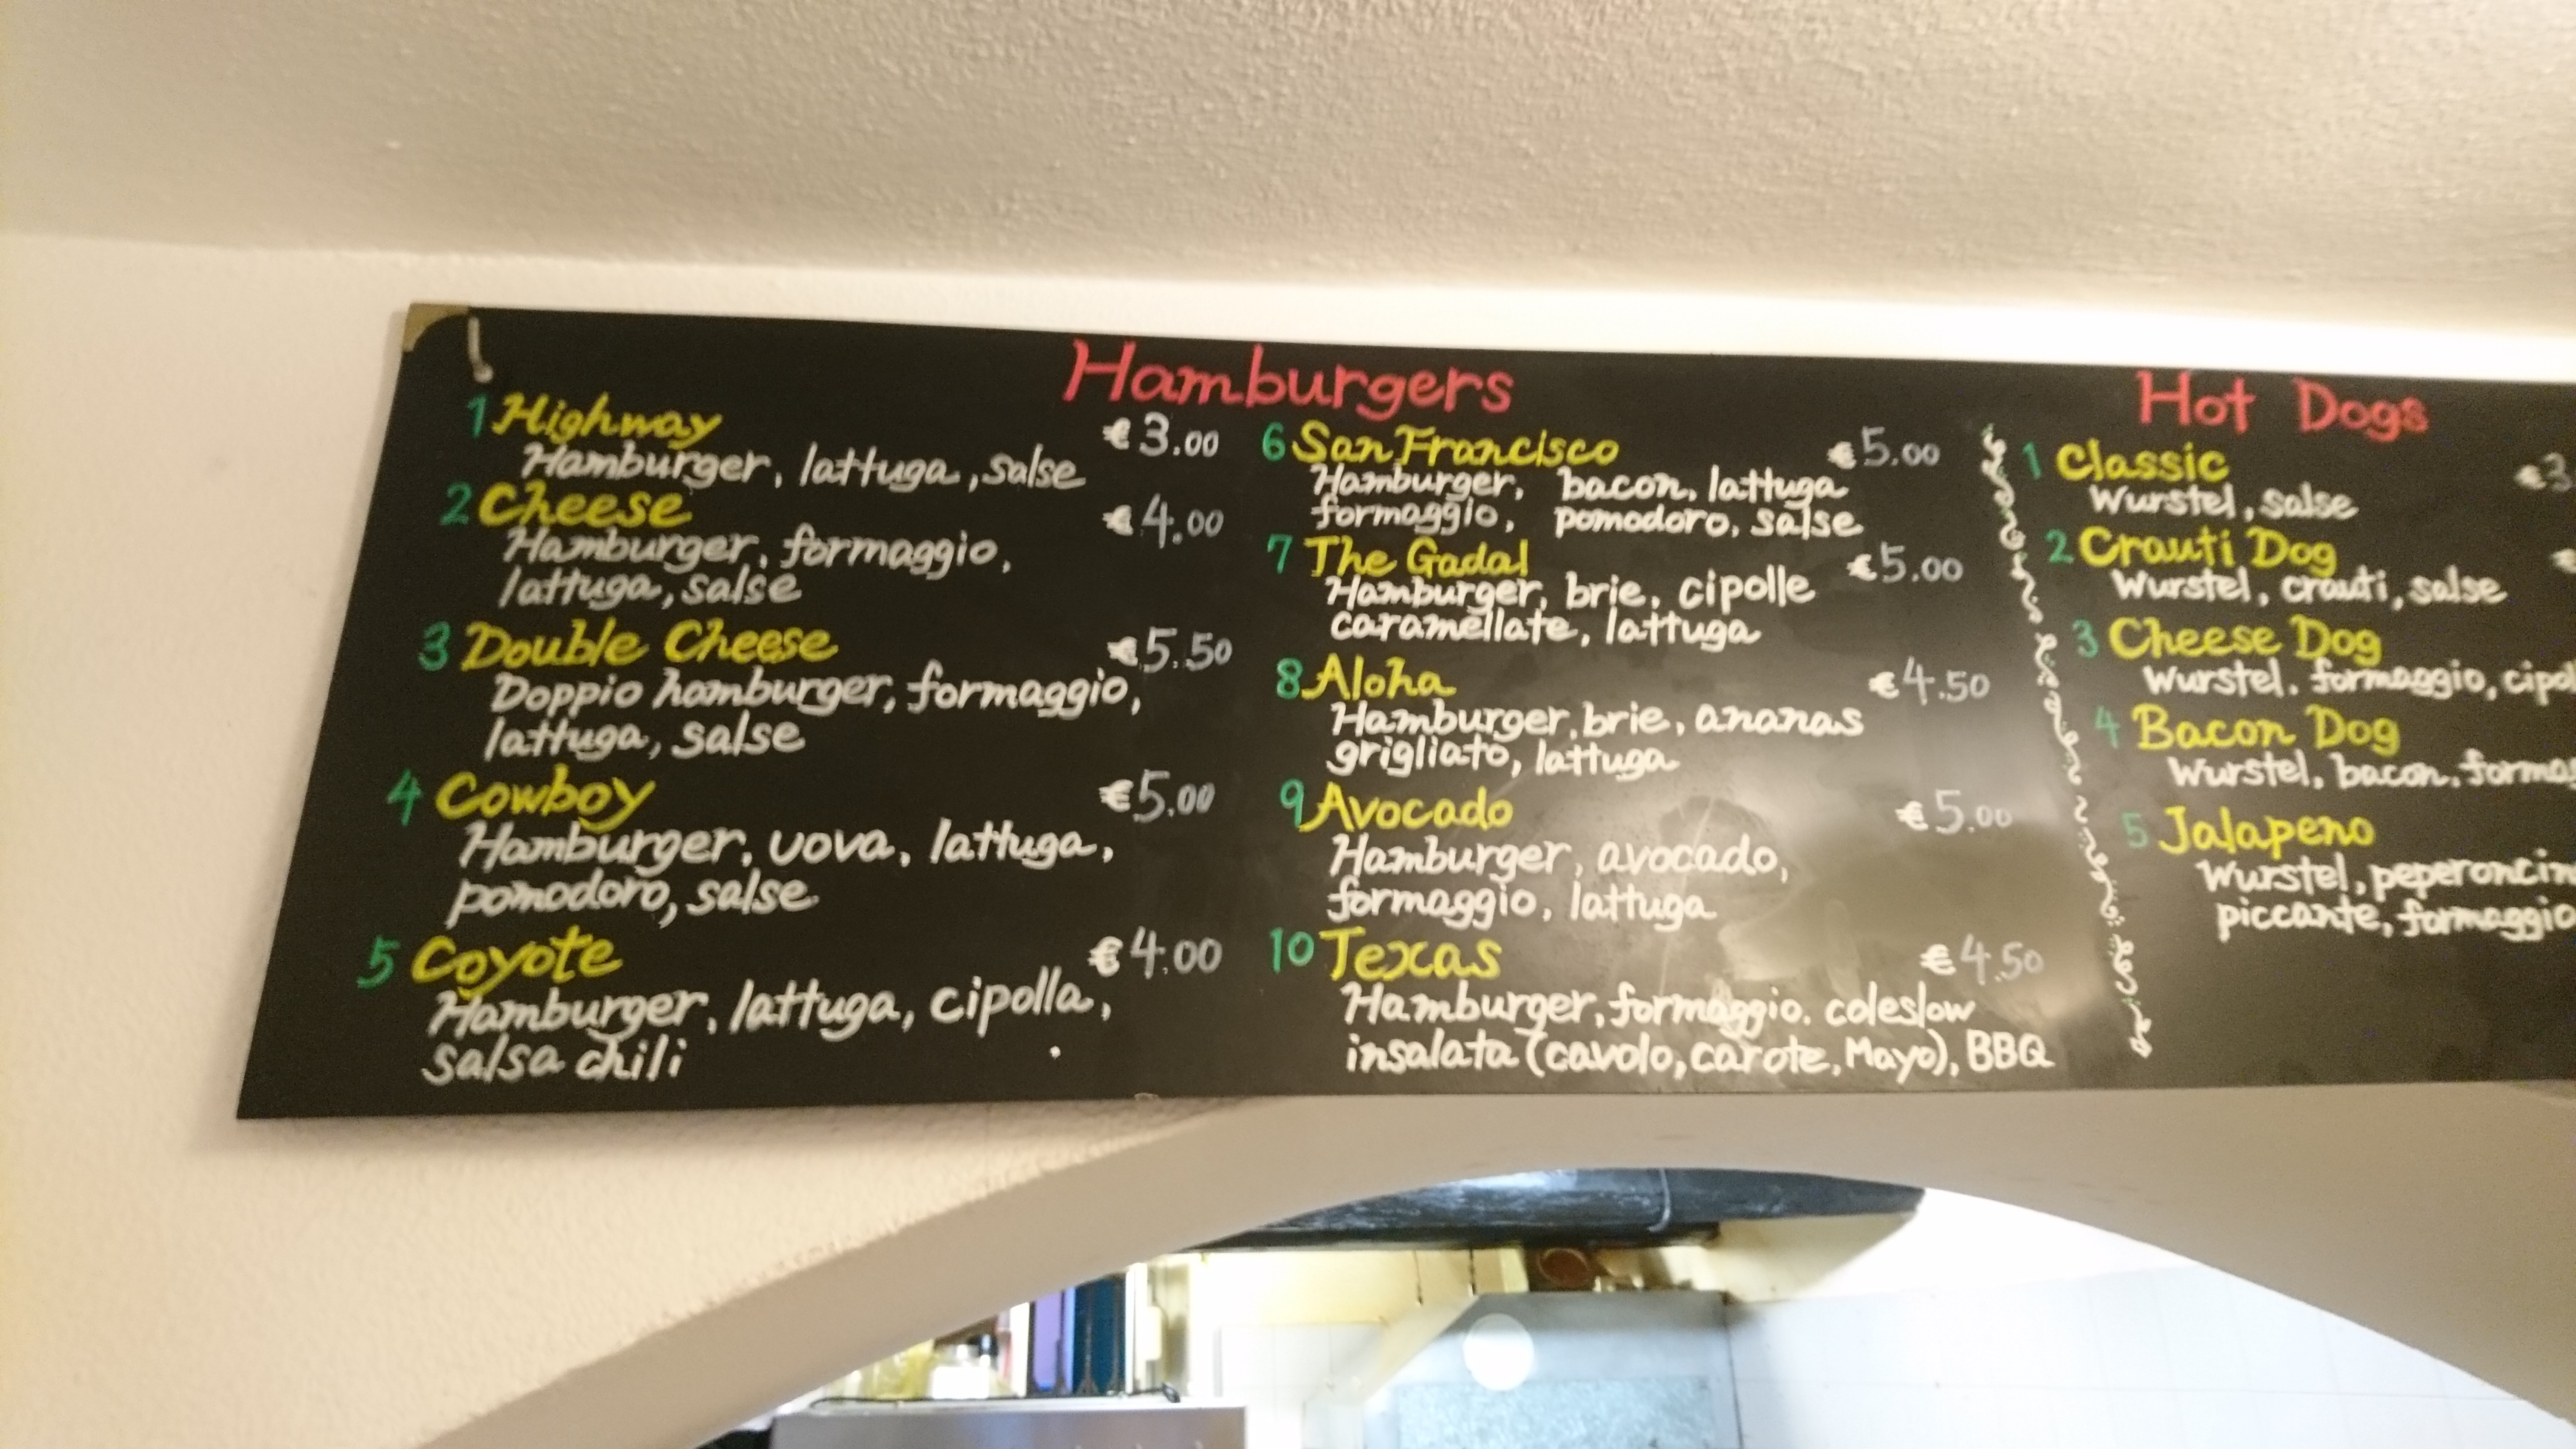 Hamburgers
1 Highway €3.00
Hamburger, lattuga, salse
2 Cheese €4.00
Hamburger, formaggio,
lattuga, salse
3 Double Cheese €5.50
Doppio hamburger, formaggio,
lattuga, salse
4 Cowboy €5.00
Hamburger, uova, lattuga,
pomodoro, salse
5 Coyote €4.00
Hamburger, lattuga, cipolla,
salsa chili
6 San Francisco €5.00
Hamburger, bacon, lattuga
formaggio, pomodoro, salse
7 The Gadal €5.00
Hamburger, brie, cipolle
caramellate, lattuga
8 Aloha €4.50
Hamburger, brie, ananas
grigliato, lattuga
9 Avocado €5.00
Hamburger, avocado,
formaggio, lattuga
10 Texas €4.50
Hamburger, formaggio. coleslow
insalata (cavolo, carote, Mayo), BBQ
Hot Dogs
1 Classic €3
Wurstel, salse
2 Crauti Dog €
Wurstel, crauti, salse
3 Cheese Dog
Wurstel. formaggio, cipol
4 Bacon Dog
Wurstel, bacon, formag
5 Jalapeno
Wurstel, peperoncin
piccante, formaggio